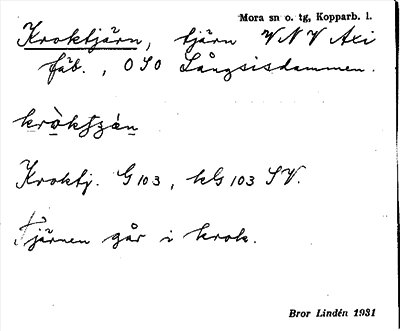 Mora sn o. tg, Kopparb. l.
Kroktjärn, tjärn VNV Axi
fäb., OSO Långsisdammen.
kròktjạ̈n
Kroktj. G 103, kG 103 SV.
Tjärnen går i krok.
Bror Lindén 1931